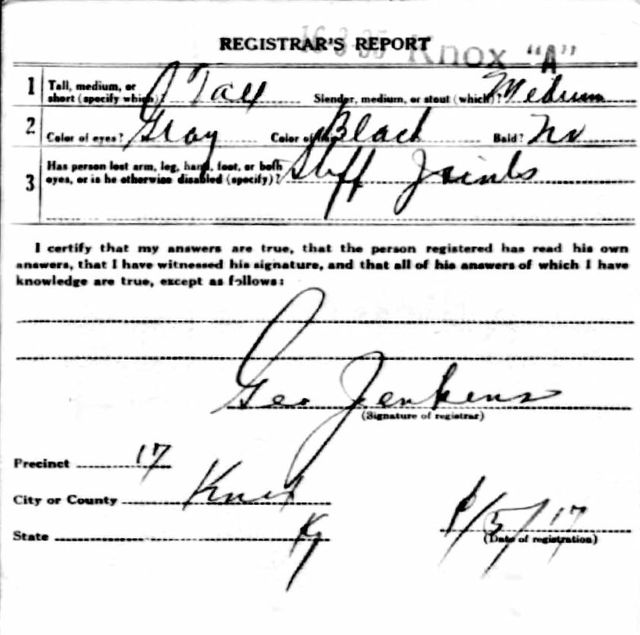 REGISTRAR'S REPORT
Knox "A"
1 Tall, medium, or short (specify which)? Tall Slender, medium, or stout (which)? Medium
2 Color of eyes? Gray Color of hair? Black Bald? No
3 Has person lost arm, leg, hand, foot, or both
eyes, or is he otherwise disabled (specify)? Stiff Joints
I certify that my answers are true, that the person registered has read his own
answers, that I have witnessed his signature, and that all of his answers of which I have
knowledge are true, except as follows:
Geo Jenkins
(Signature of registrar)
Precinct 17
City or County Knox
State Ky
/5/17
(Date of registration)